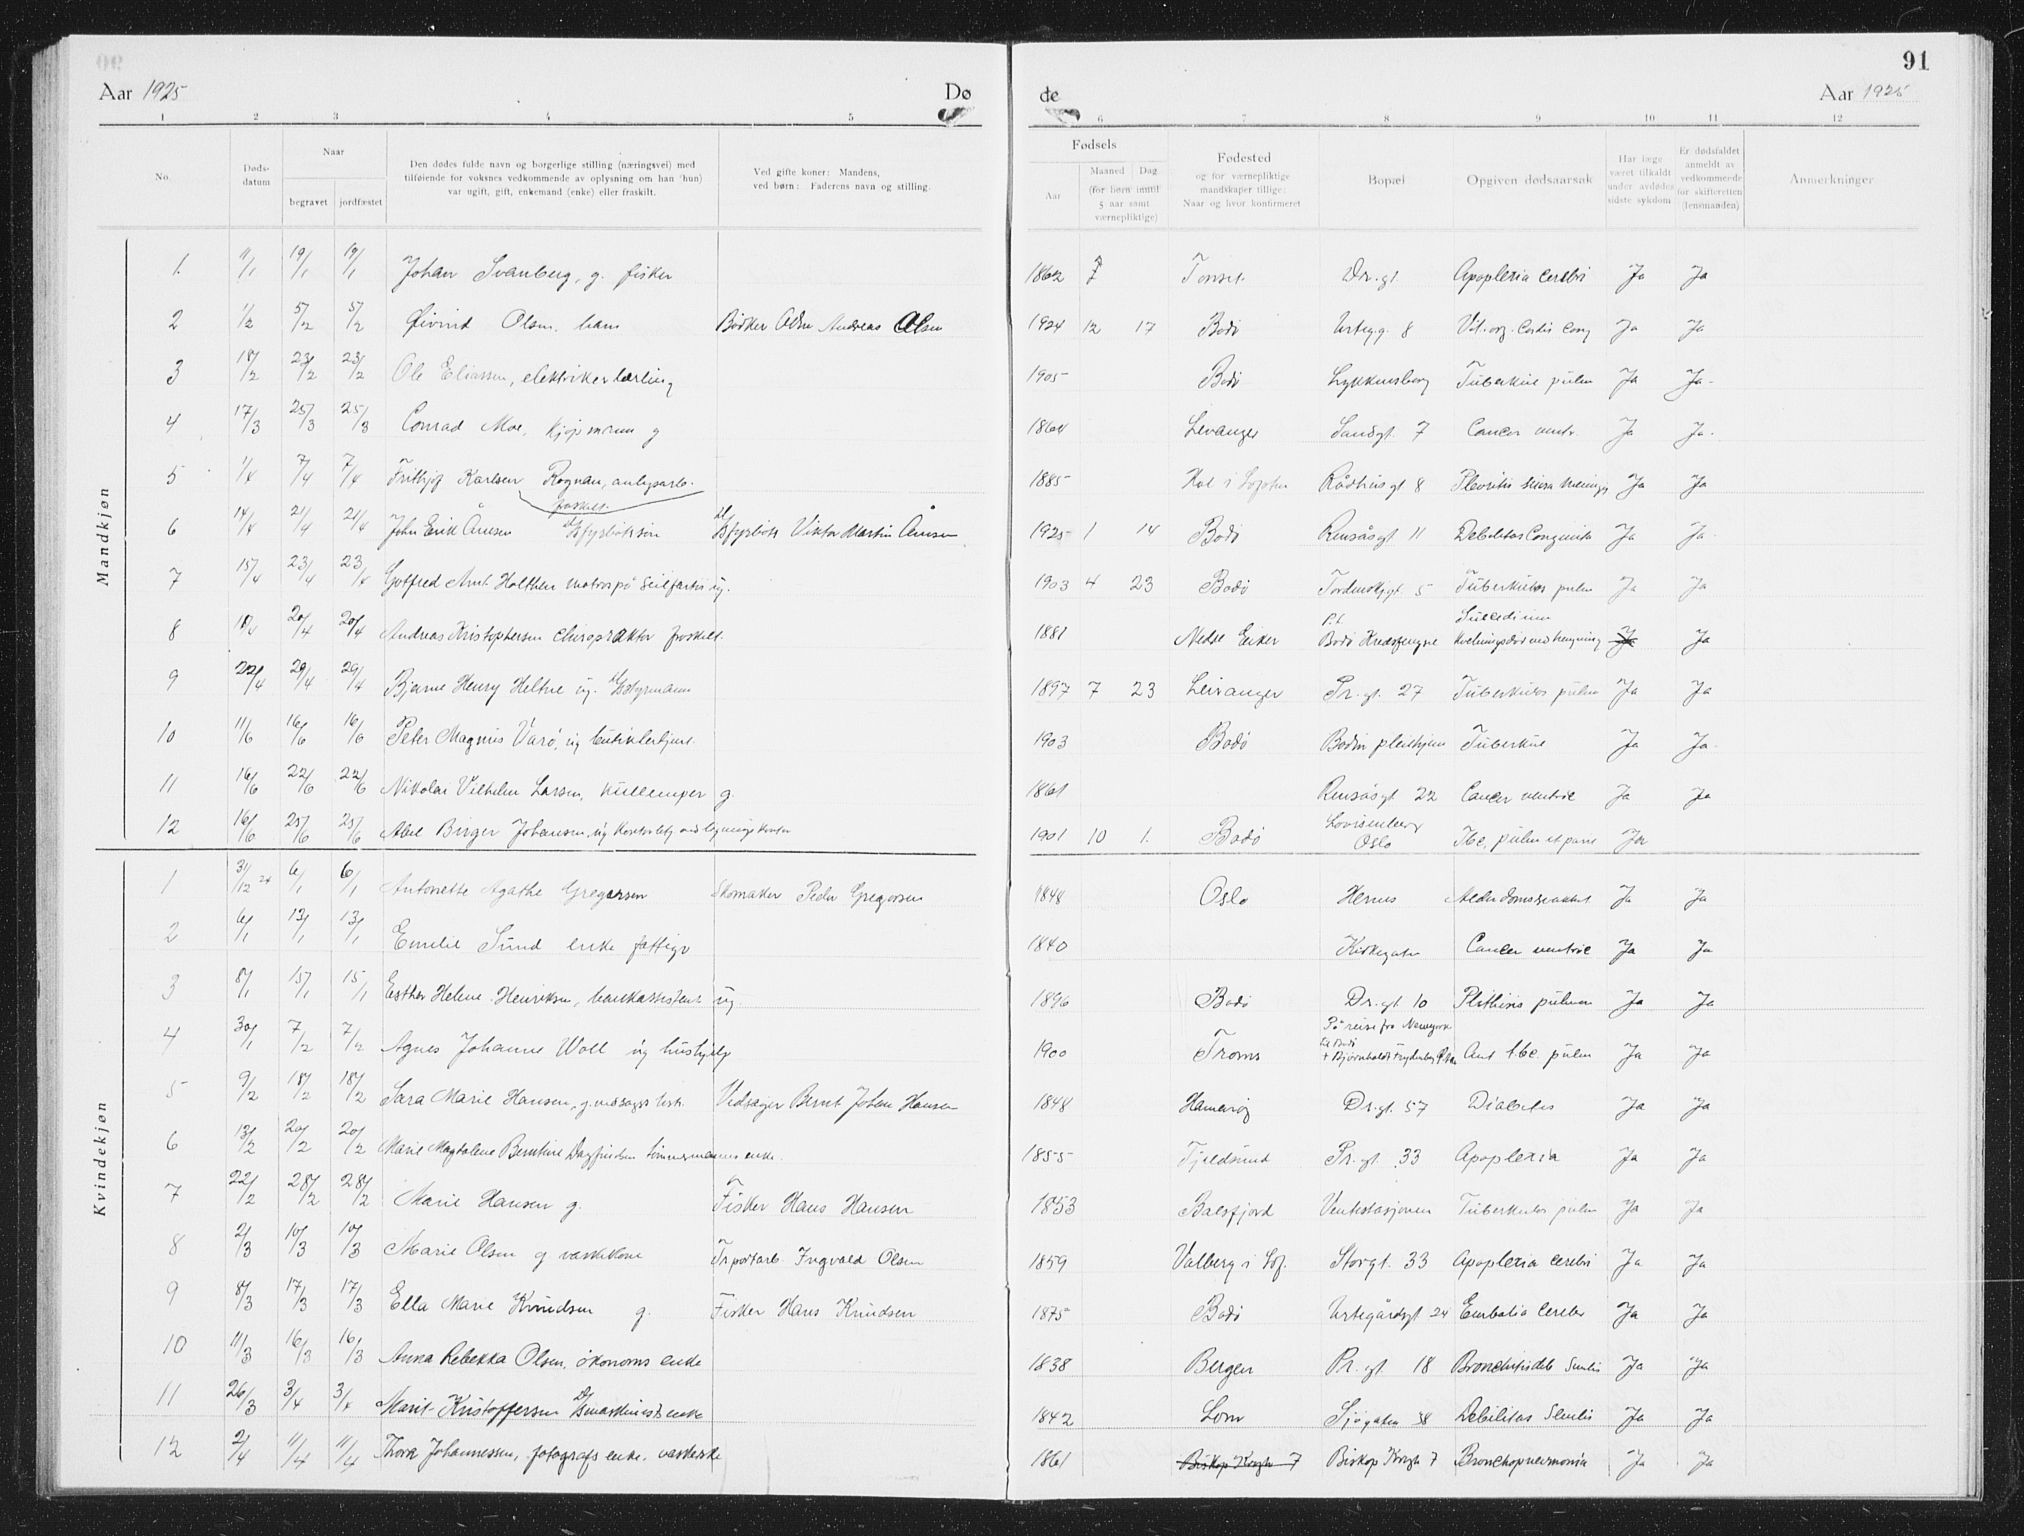 91
Aar 1925 Dø de Aar 1925
1 2 3 4 5 6 7 8 9 10 11 12
No.
Døds-
datum
Naar
begravet jordfæstet
Den dødes fulde navn og borgerlige stilling (næringsvei) med
tilføiende for voksnes vedkommende av oplysning om han (hun)
var ugift, gift, enkemand (enke) eller fraskilt.
Ved gifte koner: Mandens,
ved børn: Faderens navn og stilling.
Fødsels
Aar
Maaned Dag
(for børn inntil
5 aar samt
værnepligtige)
Fødested
og for værnepliktige
mandskaper tillige:
Naar og hvor konfirmeret
Bopæl
Opgiven dødsaarsak
Har læge
været tilkaldt
under avdødes
sidste sykdom
Er dødsfaldet
anmeldt av
vedkommende
for skifteretten
(lensmanden)
Anmerkninger
Mandkjøn
1. 11/1 19/1 19/1 Johan Svanberg, g. fisker 1862 Dr. gt. Apoplexia cerebri Ja Ja
2 1/2 5/2 5/2 Øivind Olsen, barn Bødker Andreas Olsen 1924 12 17 Bodø 8 Ja Ja
3 18/2 23/2 23/2 Ole Eliassen, elektrikerlærling 1905 Bodø Lykkensborg Tuberkul pulm Ja Ja
4 17/3 25/3 25/3 Conrad Moe, kjøpmann g 1864 Levanger Sandgt. 7 Cancer ventr. Ja Ja
5 1/4 7/4 7/4 Frithjof Karlsen Rognan, anlegsarb. fraskilt. 1885 Hol i Lofoten Rådhusgt 8 Ja Ja
6 14/4 21/4 21/4 John Erik Ånesen Viktor Martin Ånesen 1925 1 14 Bodø Rensåsgt 11 Debilitas Congenita Ja Ja
7 15/4 23/4 23/4 Gotfred Arnt Holthen matros på seilfartøi ug. 1903 4 23 Bodø 5 Tuberkulos pulm Ja Ja
8 18/4 20/4 20/4 Andreas Kristophersen chiropraktor fraskilt. 1881 Nedre Eiker p.t. Bodø Kredsfengsel Suicidium Kvelningsdød ved hengning Ja Ja
9 22/4 29/4 29/4 Bjarne Henry Heltne ug. styrmann 1897 7 23 Leiranger Pr. gt. 27 Tuberkulos pulm Ja Ja
10 11/6 16/6 16/6 Peter Magnus Varø, ug 1903 Bodø Bodin pleiehjem Tuberkul Ja Ja
11 16/6 22/6 22/6 Nikolai Vilhelm Larsen, kullemper g. 1861 Rensåsgt 22 Cancer ventric Ja Ja
12 16/6 25/6 25/6 Birger Johansen, ug 1901 10 1. Bodø Lovisenberg Oslo Tbc. pulm Ja
Kvindekjøn
1 31/12 24 6/1 6/1 Antonette Agathe Gregersen Skomaker Peder Gregersen 1848 Oslo Hernes Ja Ja
2 6/1 13/1 13/1 Emilie Sund enke fattigv 1840 Kirkegaten Cancer ventric Ja Ja
3 8/1 15/1 15/1 Esther Helene Henriksen, bankassistent ug. 1896 Bodø Dr. gt. 10 Phthisis pulmon Ja Ja
4 30/1 7/2 7/2 Agnes Johanne Woll ug hushjelp 1900 Troms På reise fra Newyork til Bodø tbc. pulm Ja Ja
5 9/2 18/2 18/2 Sara Marie Hansen, g. Vedsager Bernt Johan Hansen 1848 Hamarøy Dr. gt. 57 Diabetes Ja Ja
6 13/2 20/2 20/2 Marie Magdalene Berntine Dagfindsen tømmermanns enke. 1855 Tjeldsund Pr. gt. 33 Apoplexia Ja Ja
7 22/2 28/2 28/2 Marie Hansen g. Fisker Hans Hansen 1853 Balsfjord Ventestasjonen Tuberkulos pulm Ja Ja
8 2/3 10/3 10/3 Marie Olsen g vaskekone Trportarb. Ingvald Olsen 1859 Valberg i Lof. Storgt. 33 Apoplexia cerebri Ja Ja
9 8/3 17/3 17/3 Ella Marie Knudsen g. Fisker Hans Knudsen 1875 Bodø Urtegårdsgt 24 Embolia Cerebr Ja Ja
10 11/3 16/3 16/3 Anna Rebekka Olsen, økonoms enke 1838 Bergen Pr. gt. 18 Ja Ja
11 26/3 3/4 3/4 Marit Kristoffersen maskinists enke 1842 Lom Sjøgaten 38 Debilitas Senilis Ja Ja
12 2/4 11/4 11/4 Thora Johannessen, fotografs enke. vaskerske 1861 Biskop Krogh 7 Biskop Krogh 7 Bronchopneumonia Ja Ja